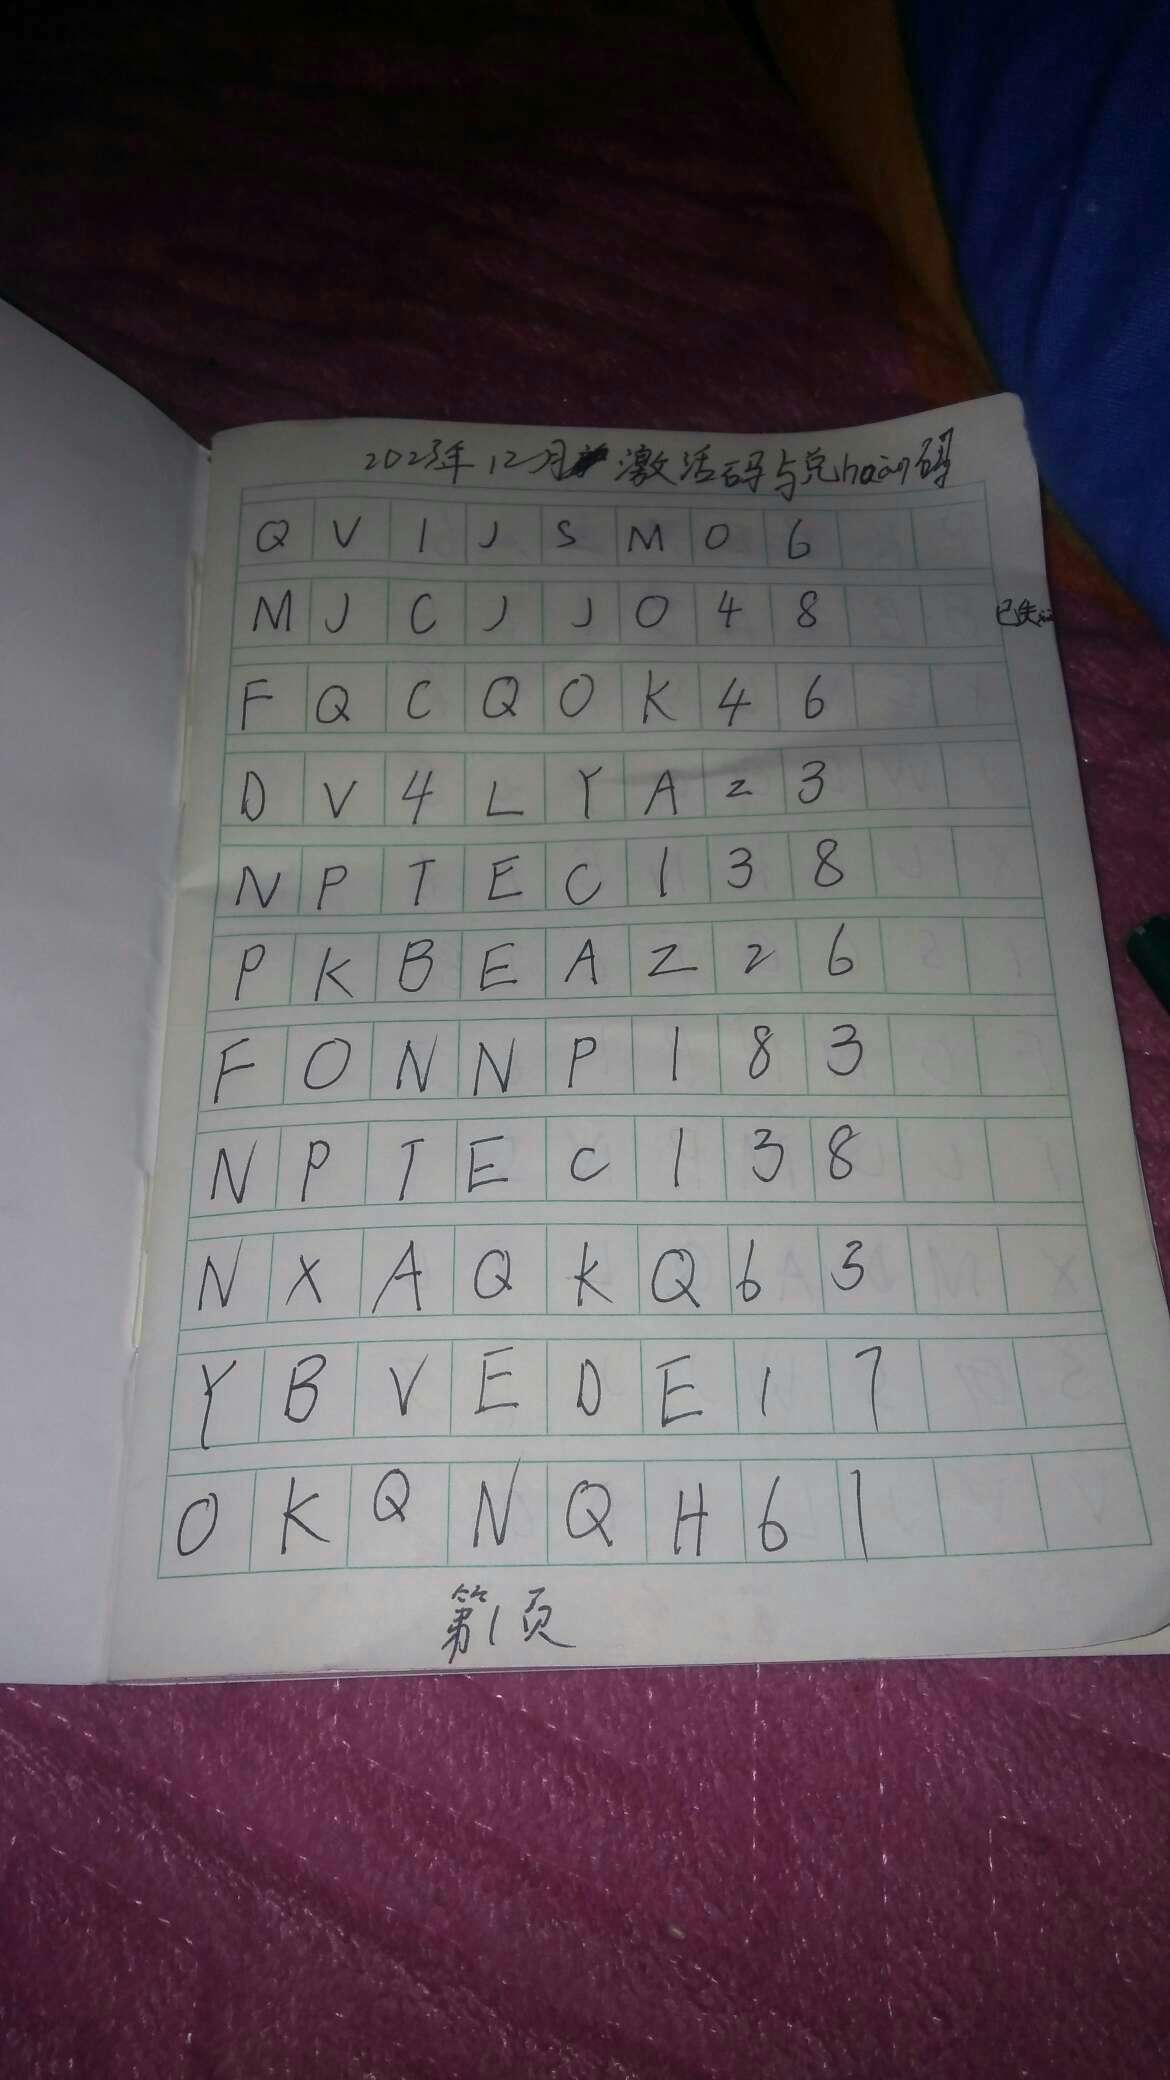 2023年12月激活码与兑huàn码
QVIJSM06
MJCJJO48 已失
FQCQOK46
DV4LYA23
NPTEC138
PKBEAZ26
FONNP183
NPTEC138
NXAQKQ63
YBVEDE17
OKQNQH61
第1页